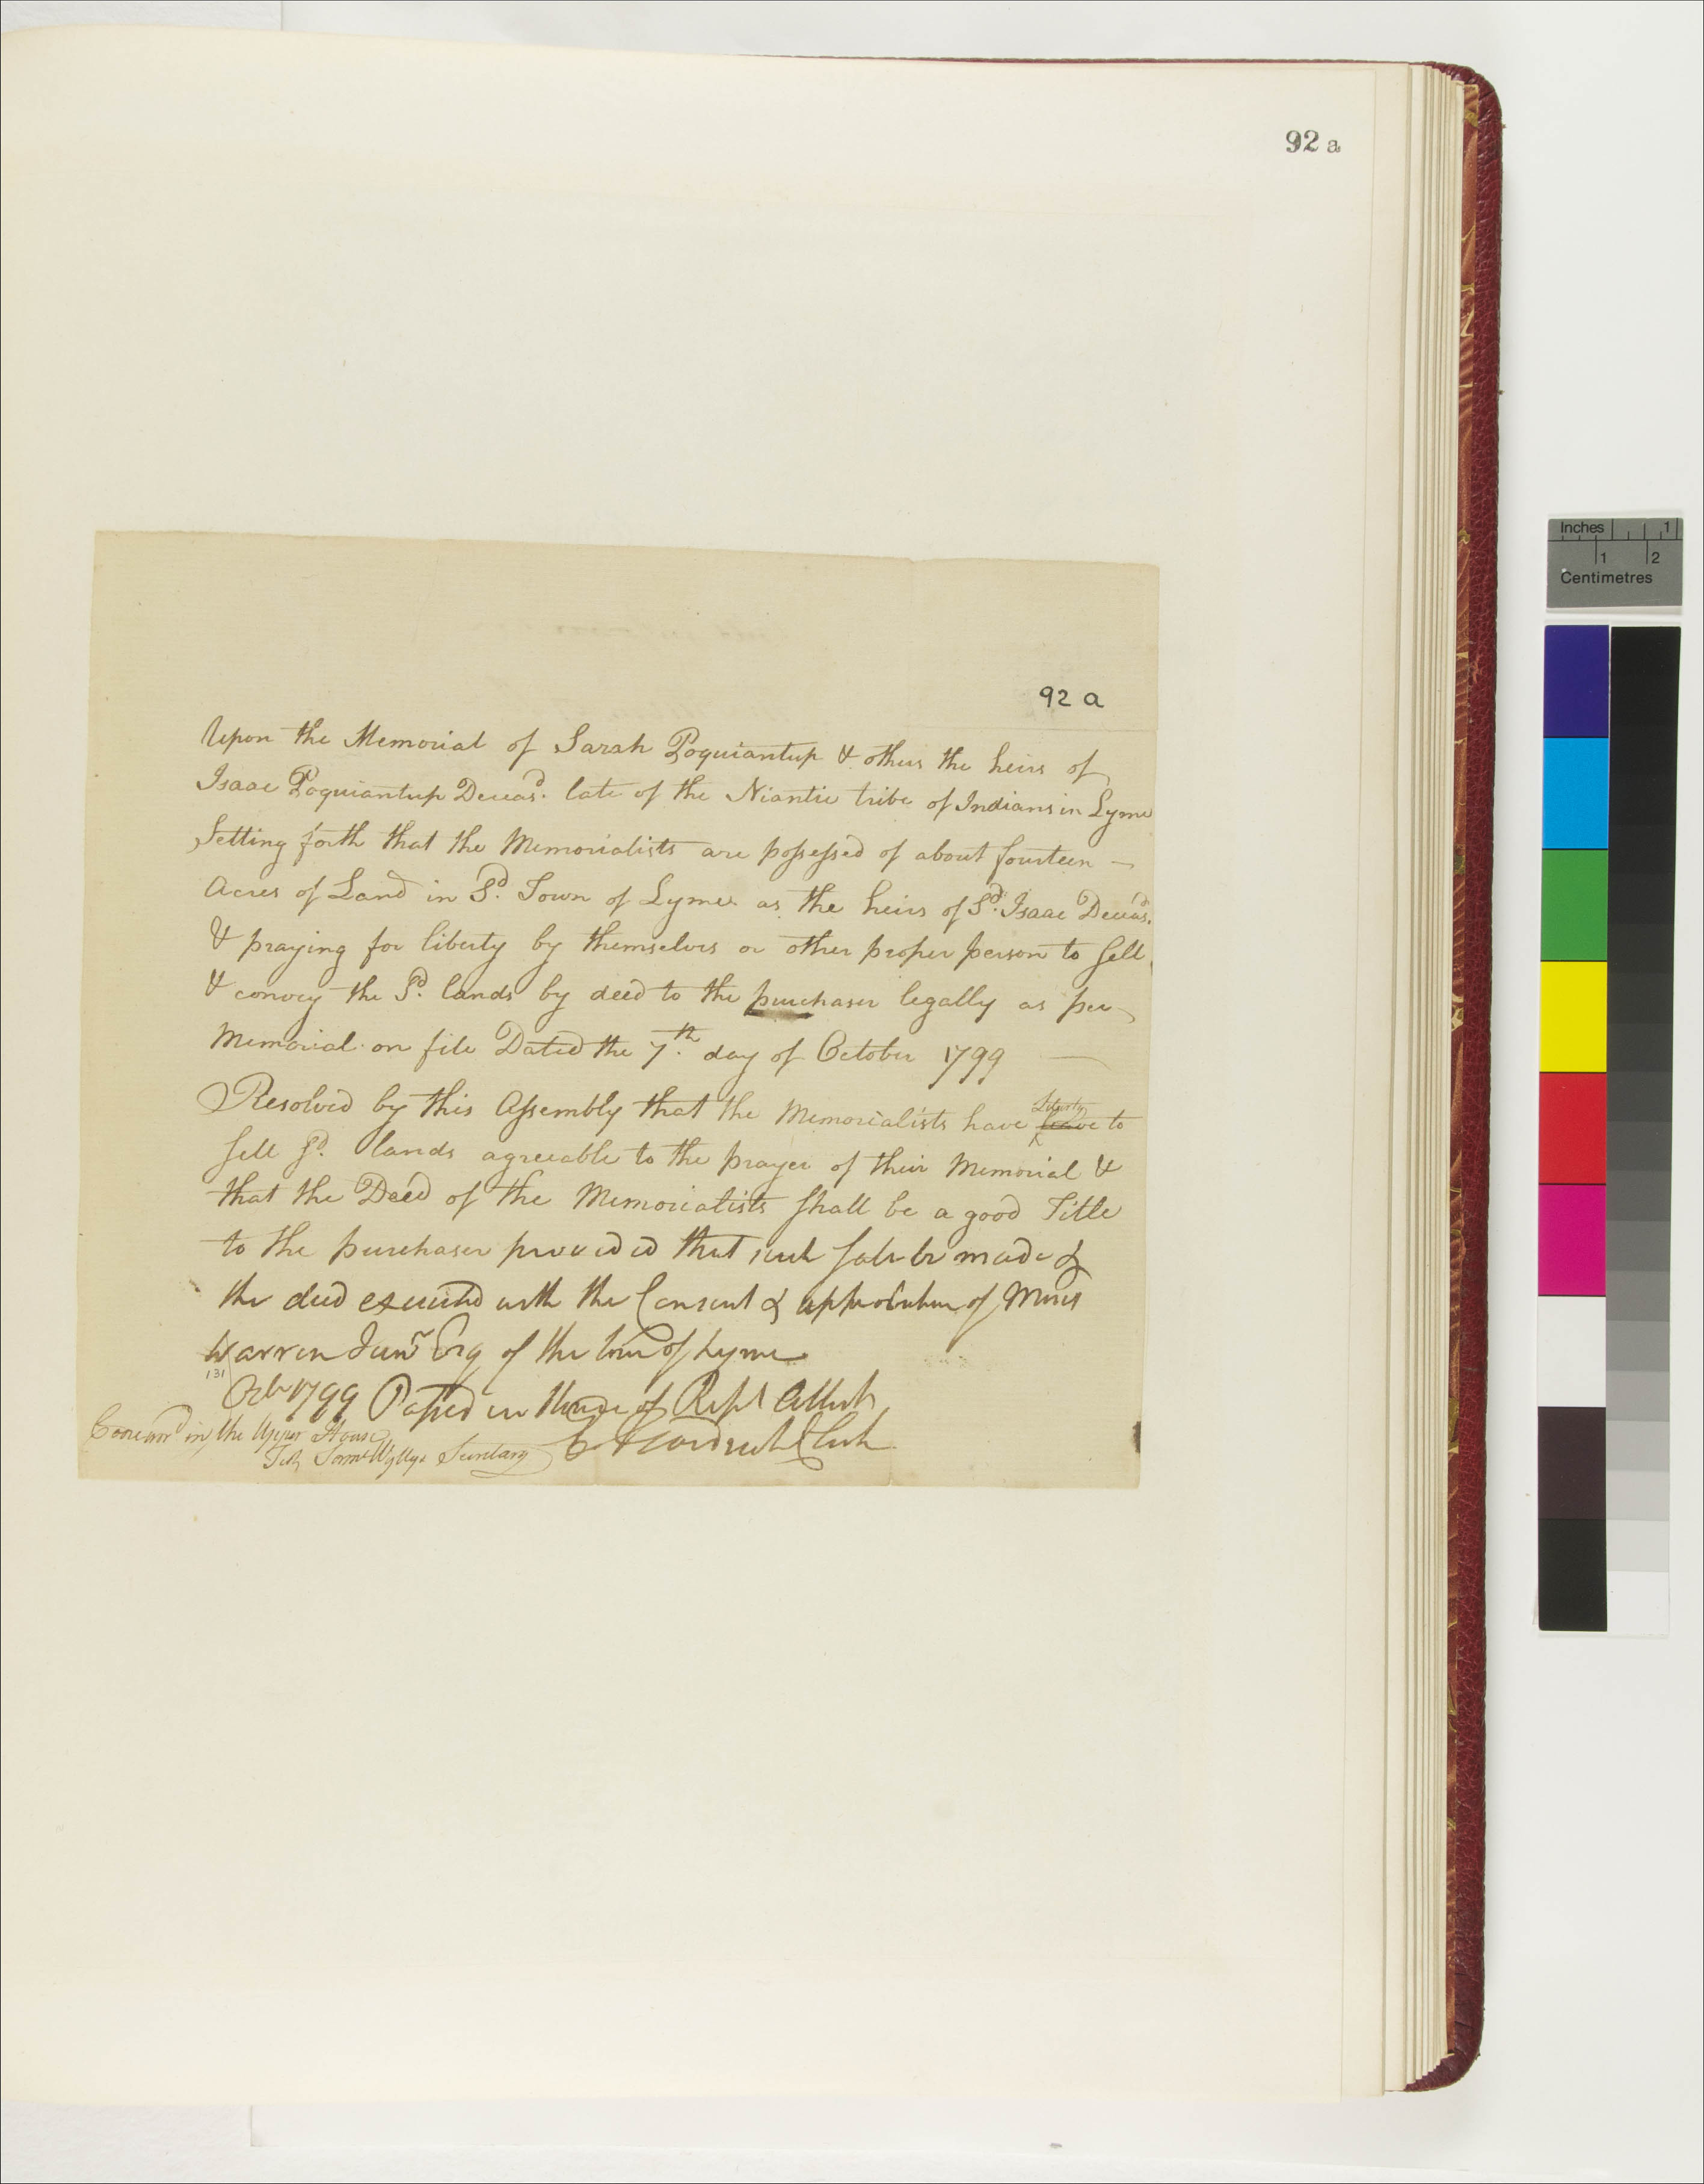 92 a
92 a
Upon the Memorial of Sarah Poquiantup & others the heirs of
Isaac Poquiantup Deceasd. late of the Niantic tribe of Indians in Lyme
Setting forth that the Memorialists are possessed of about fourteen —
Acres of Land in Sd. Town of Lyme as the heirs of Sd. Isaac Deceasd.
& praying for liberty by themselves or other proper person to sell
& convey the Sd. lands by deed to the purchaser legally as per
Memorial on file Dated the 7.th day of October 1799 —
Resolved by this Assembly that the Memorialists have Liberty leave to
sell sd. lands agreeable to the prayer of their Memorial &
that the Deed of the Memorialists shall be a good Title
to the purchaser provided that such sale be made &
the deed executed with the Consent & approbation of Moses
Warren Junr Esq of the town of Lyme
131
Octr 1799 Passed in the House of Repst Attest
Concurrd in, the Upper House
Test, Saml Wyllys Secretary
Clerk
Inches 1
1 2
Centimetres